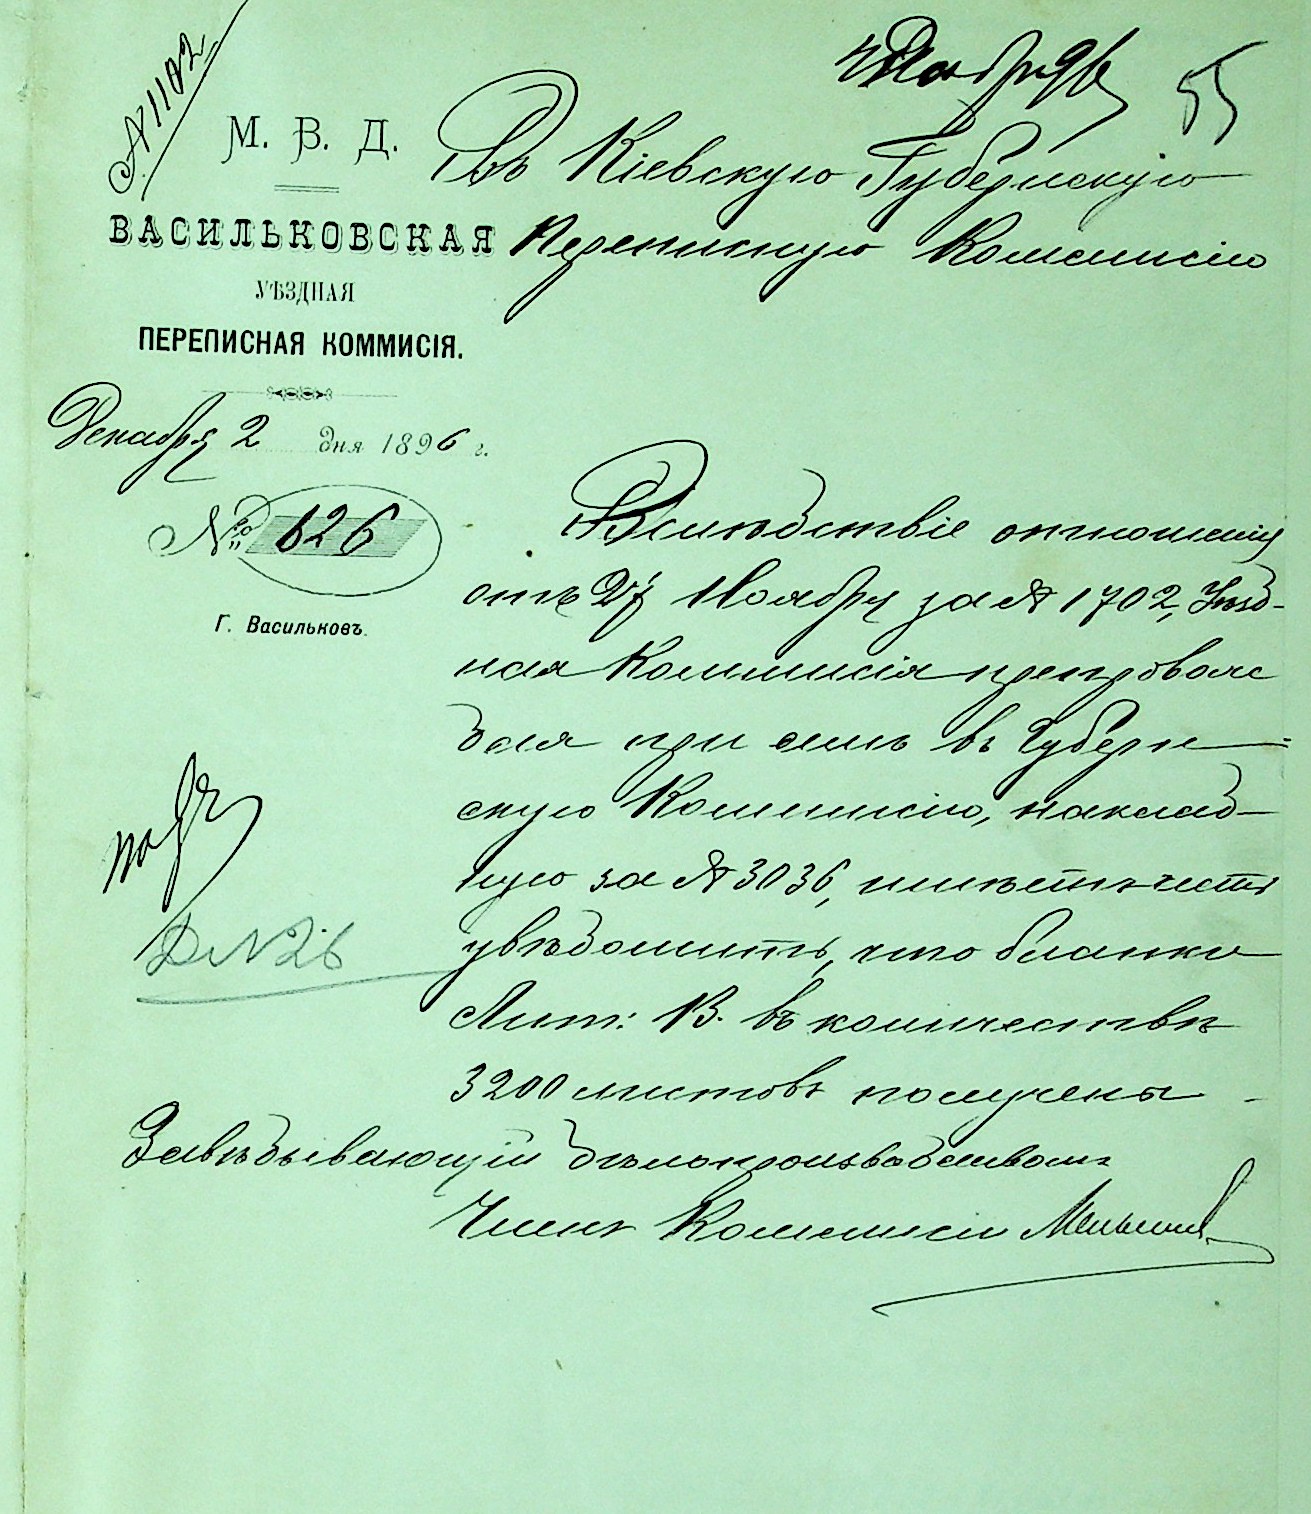 № 1102
4 Декабря 96
55
М. В. Д.
ВАСИЛЬКОВСКАЯ
УѢЗДНАЯ
ПЕРЕПИСНАЯ КОММИСІЯ.
Декабря 2 дня 1896 г.
№ 626
Г. Васильковъ.
Въ Кіевскую Губернскую
Переписную Коммисію
Вслѣдствіе отношенія
отъ 27 Ноября за № 1702, Уѣзд-
ная Коммисія препровож
дая при семъ въ Губерн-
скую Коммисію, наклад-
ную за № 3036, имѣетъ честь
увѣдомить, что бланки
Лит: В. въ количествѣ
3200 листовъ получены
Завѣдывающій дѣлопроизводствомъ
Членъ Коммисіи